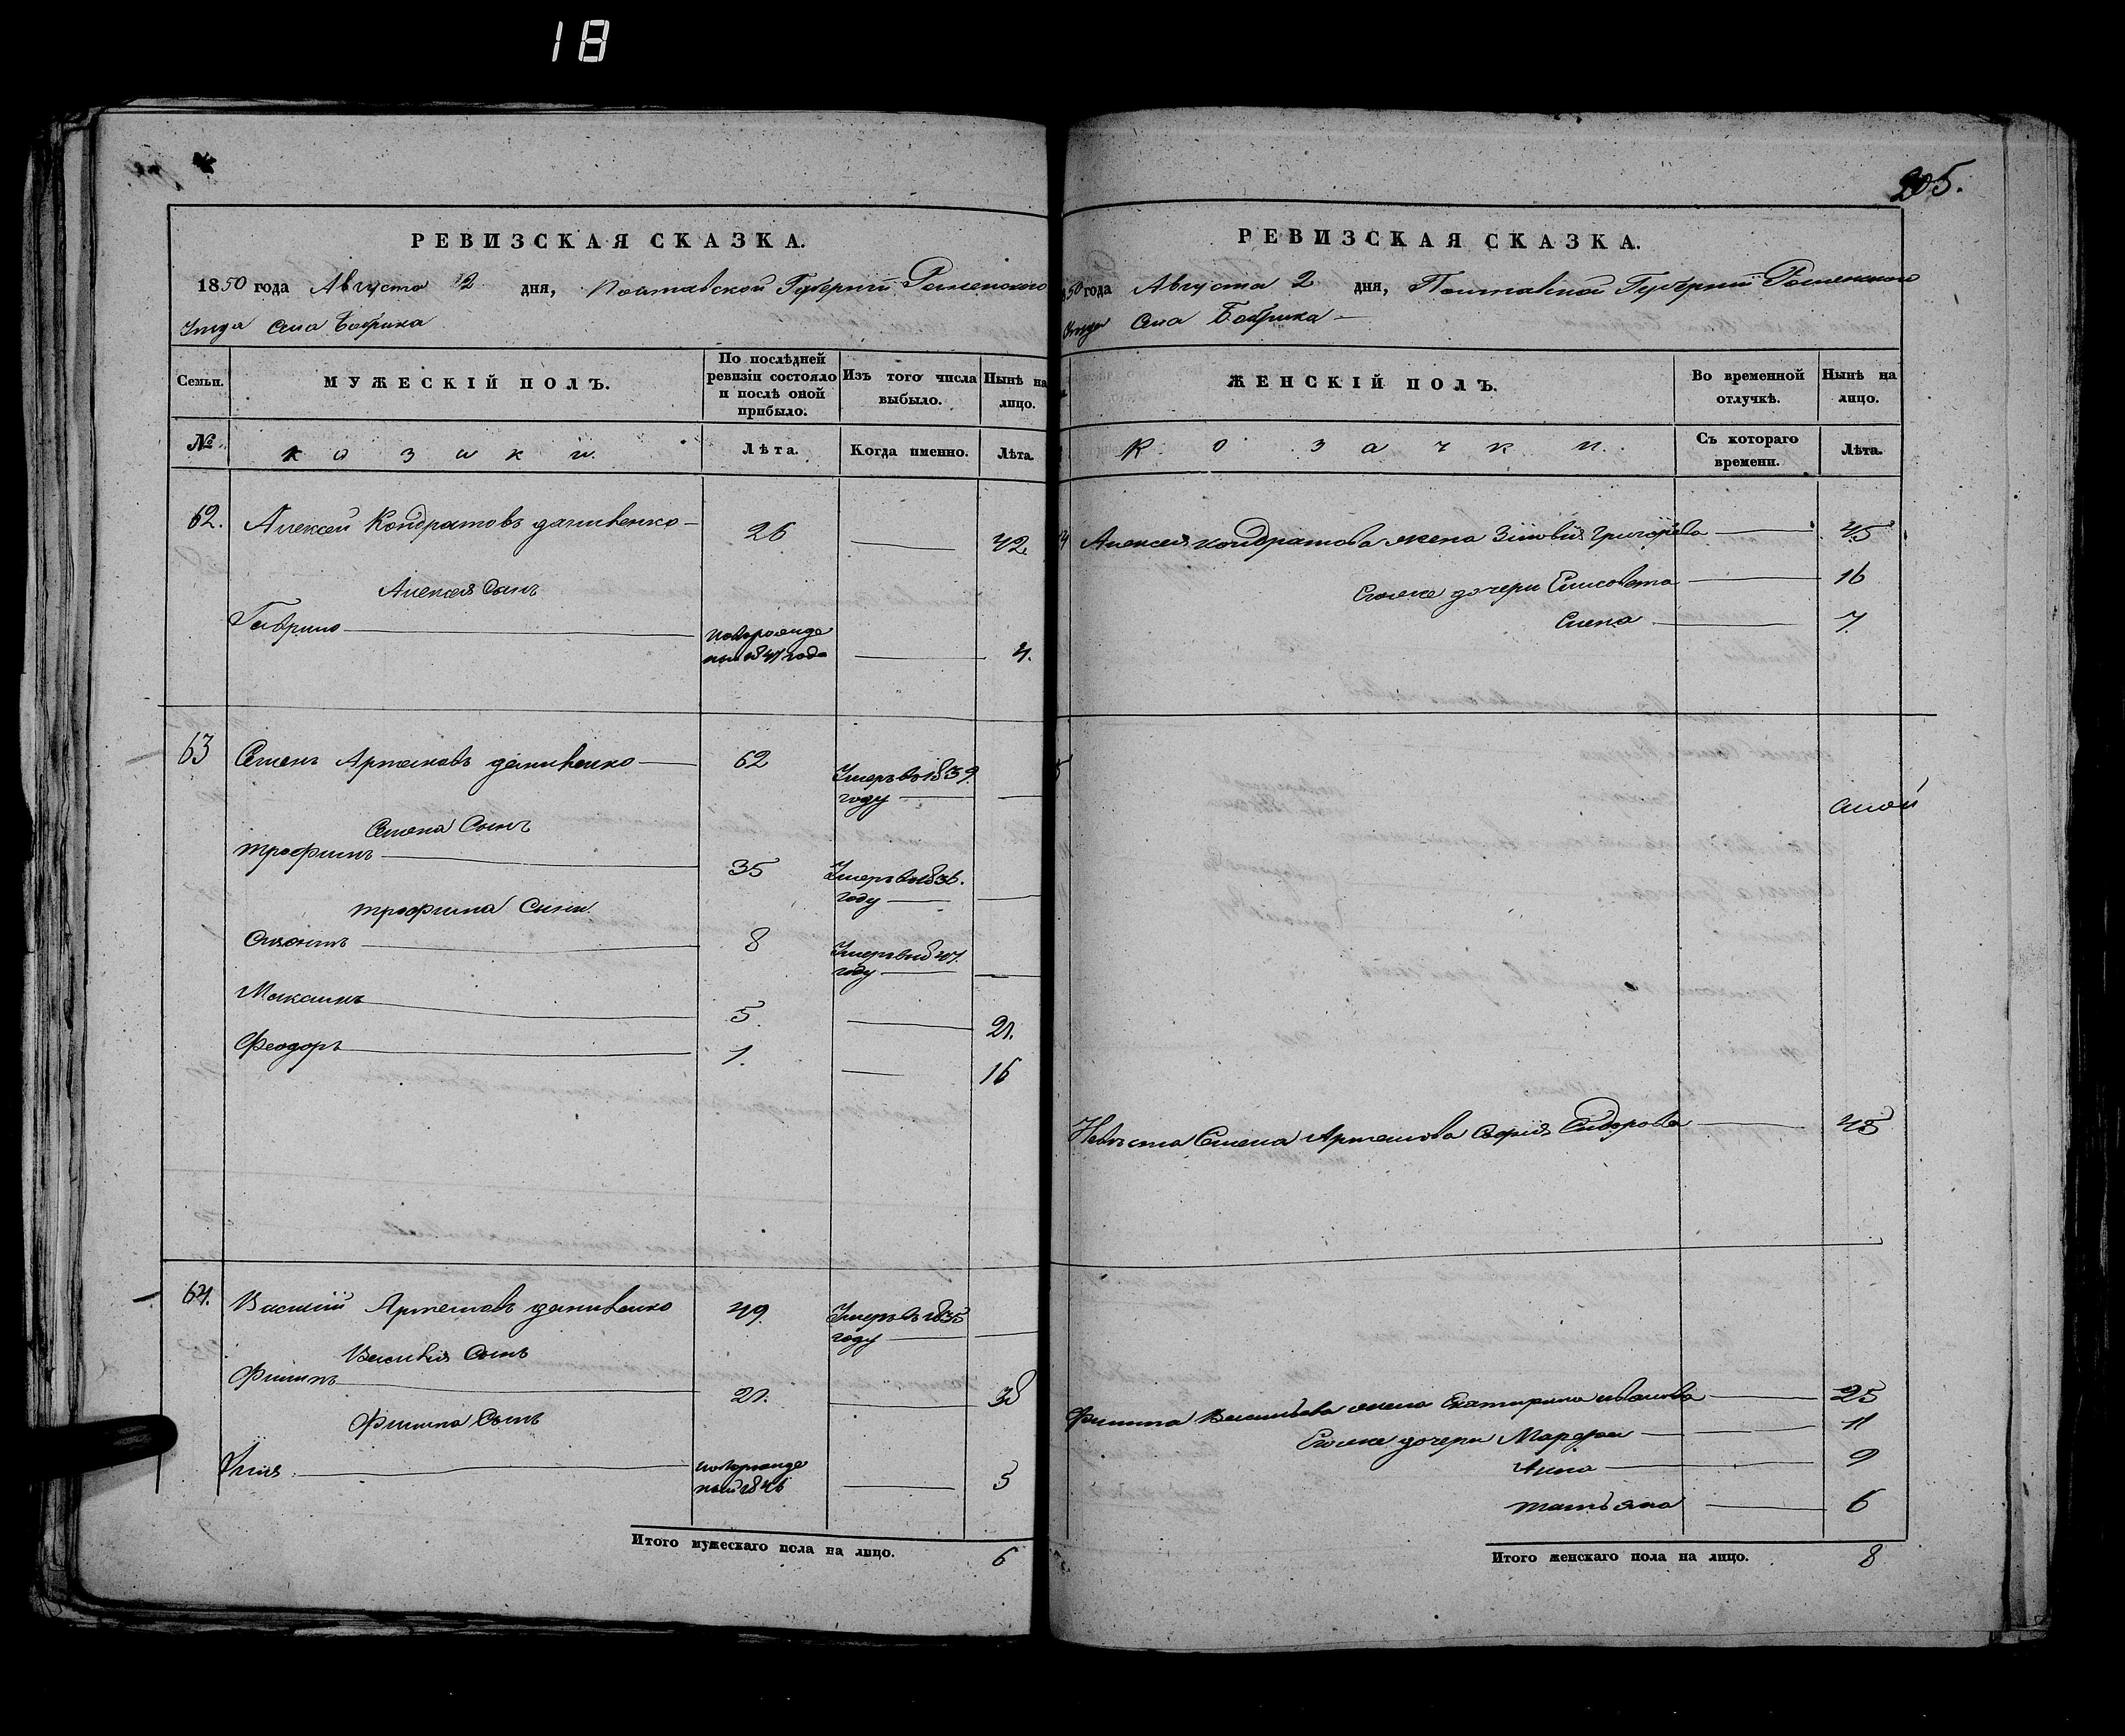 18
205.
РЕВИЗСКАЯ СКАЗКА.
1850 года Августа 2 дня, Полтавской Губернии Роменского
Уезда Села Бобрика
Семьи. МУЖЕСКІЙ ПОЛЪ. По послѣдней ревизіи состояло и послѣ оной прибыло. Изъ того числа выбыло. Нынѣ на лицо.
№ козаки. Лѣта. Когда именно. Лѣта.
62. Алексей Кондратовъ даниленко 26 42.
Алексея Сынъ
Гаврило новорожде
ный 1847 года 4.
63 Семенъ Артемовъ даниленко 62 Умеръ въ 1839
году
Семена Сынъ
трофимъ 35 Умеръ въ 1836.
году
трофима Сыни
8 Умеръ въ
году
Максимъ 5. 21.
Феодоръ 1. 16
64. Василий Артемовъ даниленко 49. Умеръ въ 1835
году
Василия Сынъ
Филипъ 21. 38
Филипа Сынъ
Илия новорожде
ный 1846 5
Итого мужескаго пола на лицо. 6
РЕВИЗСКАЯ СКАЗКА.
1850 года Августа 2 дня, Полтавской Губернии Роменского
Уезда Села Бобрика
ЖЕНСКІЙ ПОЛЪ. Во временной отлучкѣ. Нынѣ на лицо.
Козачки. Съ котораго времени. Лѣта.
Алексея кондратова жена Зиновия Григорева 45
Егоже дочери Елисовета 16
Елена 7.
Невѣста Семена Артемова София Сидорова 45
Филипа Васильева жена Екатирина иванова 25
Егоже дочери Марфа 11
Анна 9
татьяна 6
Итого женскаго пола на лицо. 8